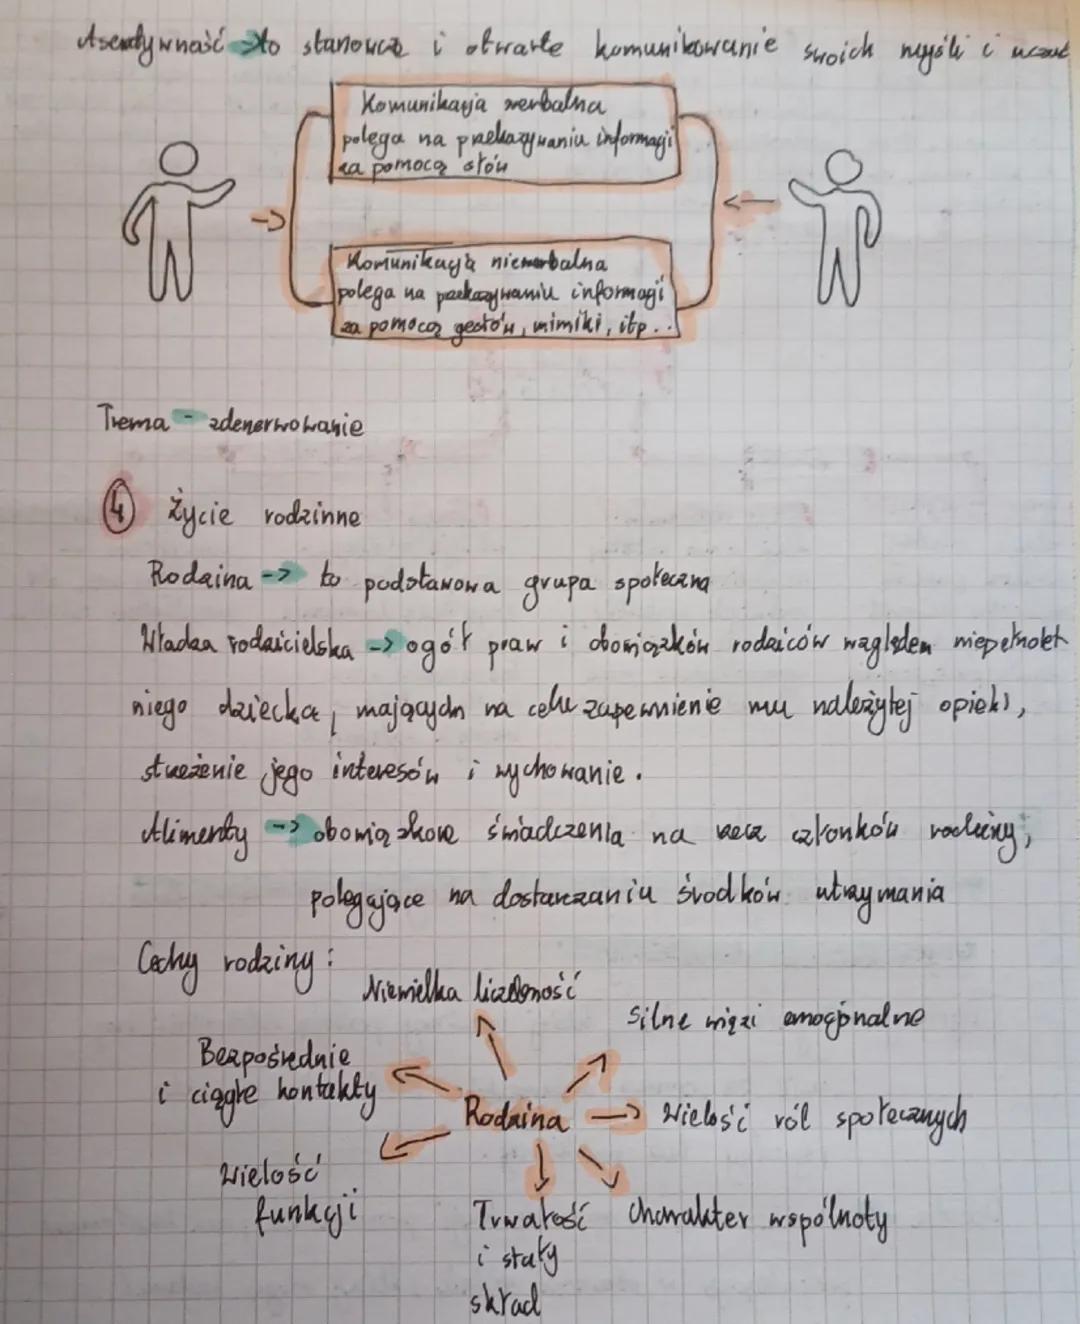 Asertywność -> to stanowcze i otwarte komunikowanie swoich myśli i uczuć
Komunikacja werbalna
polega na przekazywaniu informacji
za pomocą słów
->
<-
Komunikacja niewerbalna
polega na przekazywaniu informacji
za pomocą gestów, mimiki, itp..
Trema - zdenerwowanie
4 Życie rodzinne
Rodzina -> to podstawowa grupa społeczna
Władza rodzicielska -> ogół praw i obowiązków rodziców względem niepełnolet
niego dziecka, mających na celu zapewnienie mu należytej opieki,
strzeżenie jego interesów i wychowanie.
Alimenty -> obowiązkowe świadczenia na rzecz członków rodziny,
polegające na dostarczaniu środków utrzymania
Cechy rodziny:
Niewielka liczebność
Silne więzi emocjonalne
Bezpośrednie
i ciągłe kontakty
Rodzina
Wielość ról społecznych
Wielość
funkcji
Trwałość
i stały
skład
Charakter wspólnoty